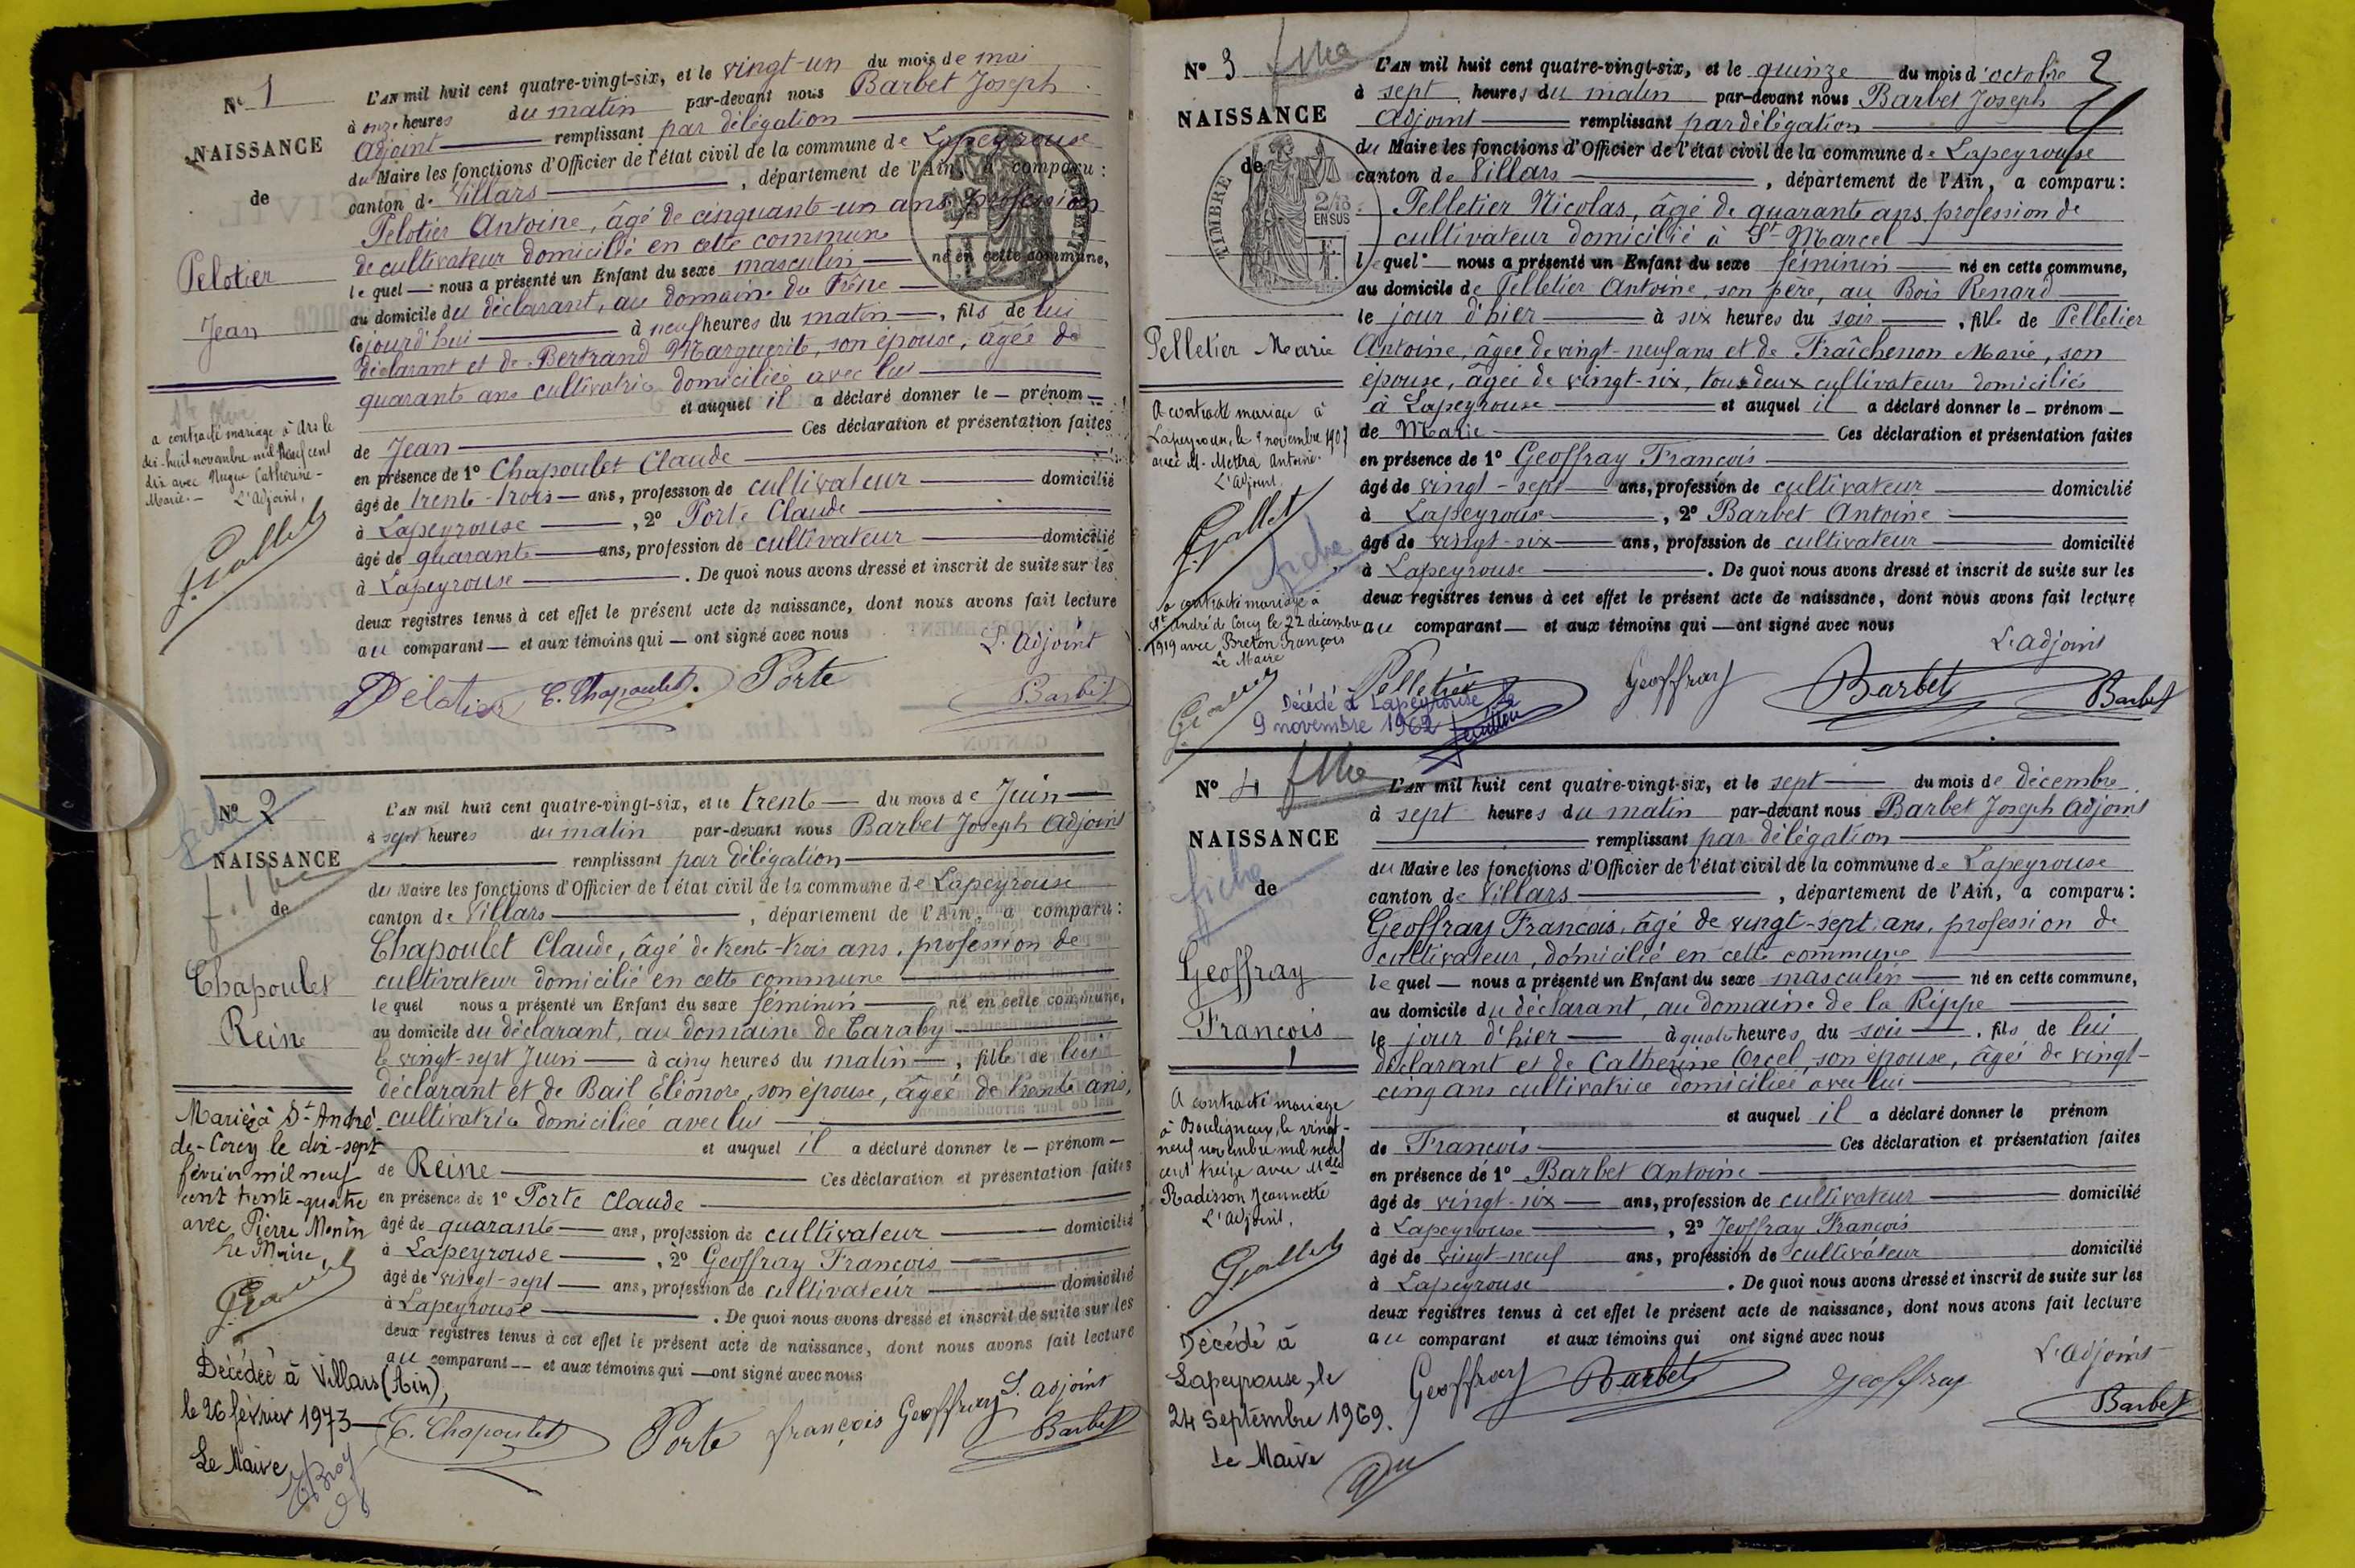 N° 1
NAISSANCE
de
Pelotier
Jean
a contracté mariage à Ars le
dix-huit novembre mil neuf cent
dix avec Nugue Catherine-
Marie.- L'Adjoint,
L'AN mil huit cent quatre-vingt-six, et le vingt-un du mois de mai
à onze heures du matin par-devant nous Barbet Joseph
Adjoint remplissant par délégation
du Maire les fonctions d'Officier de l'état civil de la commune de Lapeyrouse
canton de Villars, département de l'Ain, a comparu:
Pelotier Antoine, âgé de cinquante-un ans, profession
de cultivateur domicilié en cette commune
lequel nous a présenté un Enfant du sexe masculin né en cette commune,
au domicile du déclarant, au domaine du Frêne
cejourd'hui à neuf heures du matin, fils de lui
déclarant et de Bertrand Marguerite, son épouse, âgée de
quarante ans cultivatrice domiciliée avec lui
et auquel il a déclaré donner le prénom
de Jean Ces déclaration et présentation faites
en présence de 1° Chapoulet Claude
âgé de trente-trois ans, profession de cultivateur domicilié
à Lapeyrouse, 2° Porte Claude
âgé de quarante ans, profession de cultivateur domicilié
à Lapeyrouse. De quoi nous avons dressé et inscrit de suite sur les
deux registres tenus à cet effet le présent acte de naissance, dont nous avons fait lecture
au comparant et aux témoins qui ont signé avec nous
L'Adjoint
Pelotier C. Chapoulet. Porte Barbet
N° 2
fiche
NAISSANCE
de
Chapoulet
Reine
Mariée à St-André-
de-Corcy le dix-sept
février mil neuf
cent trente-quatre
avec Pierre Monin
Le Maire,
Décédée à Villars (Ain),
le 26 février 1973
Le Maire
L'AN mil huit cent quatre-vingt-six, et le trente du mois de Juin
à sept heures du matin par-devant nous Barbet Joseph Adjoint
remplissant par délégation
du Maire les fonctions d'Officier de l'état civil de la commune de Lapeyrouse
canton de Villars, département de l'Ain, a comparu:
Chapoulet Claude, âgé de trente-trois ans, profession de
cultivateur domicilié en cette commune
lequel nous a présenté un Enfant du sexe féminin né en cette commune,
au domicile du déclarant, au domaine de Taraby
le vingt-sept Juin à cinq heures du matin, fille de lui
déclarant et de Bail Eléonore, son épouse, âgée de trente ans,
cultivatrice domiciliée avec lui
et auquel il a déclaré donner le prénom
de Reine Ces déclaration et présentation faites
en présence de 1° Porte Claude
âgé de quarante ans, profession de cultivateur domicilié
à Lapeyrouse, 2° Geoffray François
âgé de vingt-sept ans, profession de cultivateur domicilié
à Lapeyrouse. De quoi nous avons dressé et inscrit de suite sur les
deux registres tenus à cet effet le présent acte de naissance, dont nous avons fait lecture
au comparant et aux témoins qui ont signé avec nous
L'adjoint
C. Chapoulet Porte françois Geoffray Barbet
2
N° 3
NAISSANCE
de
TIMBRE
EN SUS
Pelletier Marie
A contracté mariage à
Lapeyrouse, le 9 novembre 1907
avec M. Metra Antoine.
L'Adjoint
fiche
a contracté mariage à
St André de Corcy le 22 décembre
1919 avec Breton François
Le Maire
Décédé à Lapeyrouse le
9 novembre 1962
L'AN mil huit cent quatre-vingt-six, et le quinze du mois d'octobre
à sept heures du matin par-devant nous Barbet Joseph
Adjoint remplissant par délégation
du Maire les fonctions d'Officier de l'état civil de la commune de Lapeyrouse
canton de Villars, département de l'Ain, a comparu:
Pelletier Nicolas, âgé de quarante ans profession de
cultivateur domicilié à St Marcel
lequel nous a présenté un Enfant du sexe féminin né en cette commune,
au domicile de Pelletier Antoine, son père, au Bois Renard
le jour d'hier à six heures du soir, fille de Pelletier
Antoine, âgée de vingt-neuf ans et de Fraîchenon Marie, son
épouse, âgée de vingt-six, tous deux cultivateurs domiciliés
à Lapeyrouse et auquel il a déclaré donner le prénom
de Marie Ces déclaration et présentation faites
en présence de 1° Geoffray François
âgé de vingt-sept ans, profession de cultivateur domicilié
à Lapeyrouse, 2° Barbet Antoine
âgé de vingt-six ans, profession de cultivateur domicilié
à Lapeyrouse. De quoi nous avons dressé et inscrit de suite sur les
deux registres tenus à cet effet le présent acte de naissance, dont nous avons fait lecture
au comparant et aux témoins qui ont signé avec nous
L'adjoint
Pelletier Geoffray Barbet Barbet
N° 4
NAISSANCE
fiche
de
Geoffray
François
A contracté mariage
à Bouligneux, le vingt-
neuf novembre mil neuf
cent treize avec Mdelle
Radisson Jeannette
L'Adjoint,
Décédé à
Lapeyrouse, le
24 septembre 1969.
Le Maire
L'AN mil huit cent quatre-vingt-six, et le sept du mois de décembre
à sept heures du matin par-devant nous Barbet Joseph Adjoint
remplissant par délégation
du Maire les fonctions d'Officier de l'état civil de la commune de Lapeyrouse
canton de Villars, département de l'Ain, a comparu:
Geoffray François, âgé de vingt-sept ans, profession de
cultivateur, domicilié en cette commune
lequel nous a présenté un Enfant du sexe masculin né en cette commune,
au domicile du déclarant, au domaine de la Rippe
le jour d'hier à quatre heures du soir, fils de lui
déclarant et de Catherine Orcel, son épouse, âgée de vingt-
cinq ans cultivatrice domiciliée avec lui
et auquel il a déclaré donner le prénom
de François Ces déclaration et présentation faites
en présence de 1° Barbet Antoine
âgé de vingt-six ans, profession de cultivateur domicilié
à Lapeyrouse, 2° Jeoffray François
âgé de vingt-neuf ans, profession de cultivateur domicilié
à Lapeyrouse. De quoi nous avons dressé et inscrit de suite sur les
deux registres tenus à cet effet le présent acte de naissance, dont nous avons fait lecture
au comparant et aux témoins qui ont signé avec nous
L'Adjoint
Geoffray Barbet Jeoffray Barbet